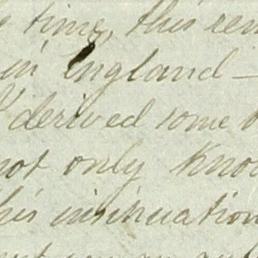 time, this
in England —
I derived some
not only
his insinuation